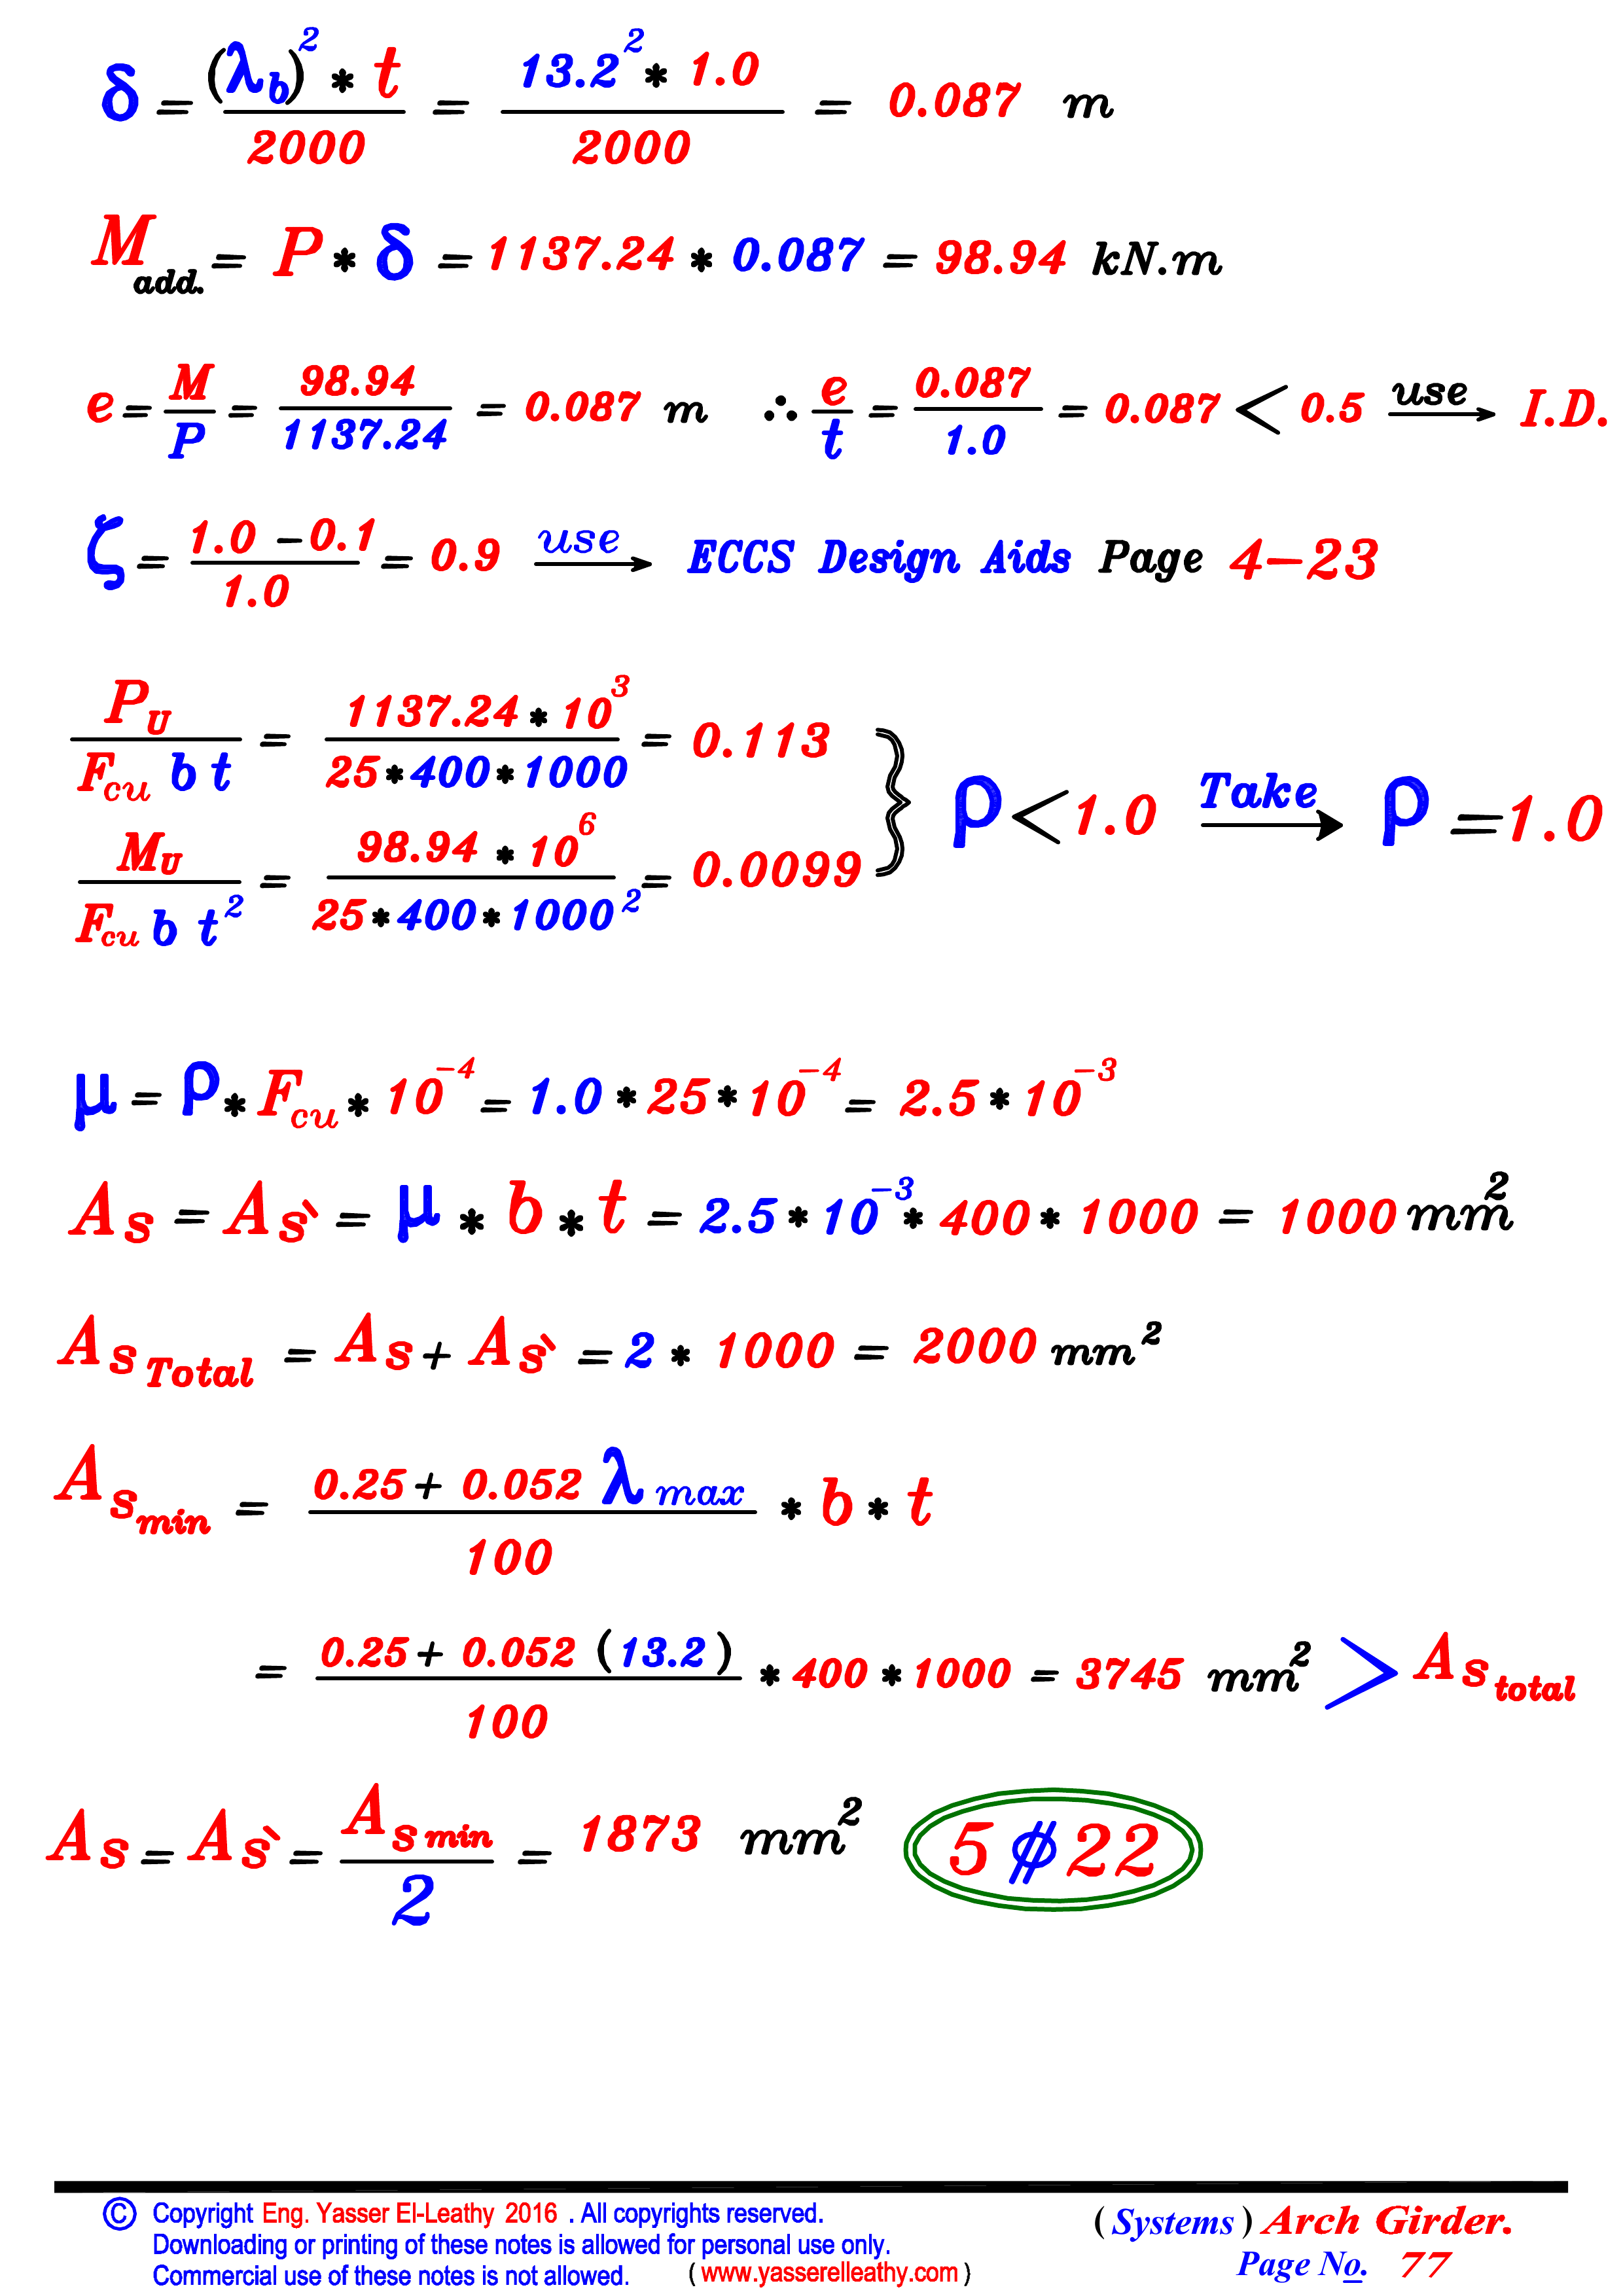 δ = (λb)² * t / 2000 = 13.2² * 1.0 / 2000 = 0.087 m
M add. = P * δ = 1137.24 * 0.087 = 98.94 kN.m
e = M / P = 98.94 / 1137.24 = 0.087 m ∴ e / t = 0.087 / 1.0 = 0.087 < 0.5 use → I.D.
ζ = 1.0 - 0.1 / 1.0 = 0.9 use → ECCS Design Aids Page 4-23
PU / Fcu b t = 1137.24 * 10³ / 25 * 400 * 1000 = 0.113
MU / Fcu b t² = 98.94 * 10⁶ / 25 * 400 * 1000² = 0.0099
} ρ < 1.0 Take → ρ = 1.0
μ = ρ * Fcu * 10⁻⁴ = 1.0 * 25 * 10⁻⁴ = 2.5 * 10⁻³
As = As` = μ * b * t = 2.5 * 10⁻³ * 400 * 1000 = 1000 mm²
As Total = As + As` = 2 * 1000 = 2000 mm²
As min = 0.25 + 0.052 λ max / 100 * b * t
= 0.25 + 0.052 (13.2) / 100 * 400 * 1000 = 3745 mm² > As total
As = As` = As min / 2 = 1873 mm² 5 ⌀ 22
© Copyright Eng. Yasser El-Leathy 2016 . All copyrights reserved.
Downloading or printing of these notes is allowed for personal use only.
Commercial use of these notes is not allowed. ( www.yasserelleathy.com )
( Systems ) Arch Girder.
Page No. 77